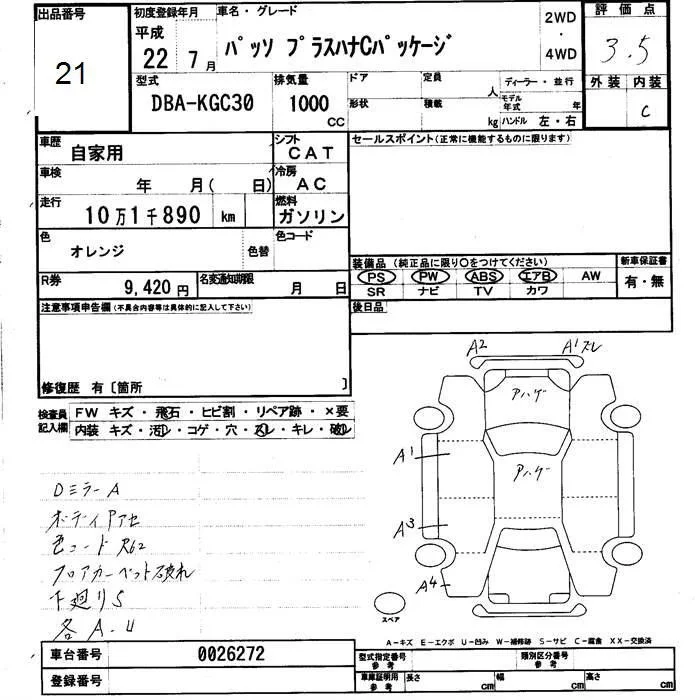 出品番号
21
初度登録年月
平成
22 7月
車名・グレード
パッソ プラスハナCパッケージ
2WD
・
4WD
評価点
3.5
外装 内装
C
型式
DBA-KGC30
排気量
1000
CC
ドア 定員 人
形状 積載 kg
ディーラー・並行
モデル年式 年
ハンドル 左・右
車歴 自家用
シフト CAT
車検 年 月( 日)
冷房 AC
走行 10万1千890 km
燃料 ガソリン
色 オレンジ 色替
色コード
R券 9,420円
名変通知期限 月 日
セールスポイント(正常に機能するものに限ります)
装備品(純正品に限り○をつけてください)
PS PW ABS エアB AW
SR ナビ TV カワ
新車保証書
有・無
後日品
注意事項申告欄(不具合内容等は具体的に記入して下さい)
修復歴 有〔箇所 〕
検査員記入欄
FW キズ・飛石・ヒビ割・リペア跡・×要
内装 キズ・汚レ・コゲ・穴・スレ・キレ・破レ
DミラーA
ボディアアセ
色コード R62
フロアカーペット破れ
下廻りS
各A.U
A2
A1ズレ
アハゲ
A1
アハゲ
A3
A4
スペア
A-キズ E-エクボ U-凹み W-補修跡 S-サビ C-腐食 XX-交換済
車台番号 0026272
登録番号
型式指定番号 参考
類別区分番号 参考
車庫証明用 参考
長さ cm
幅 cm
高さ cm